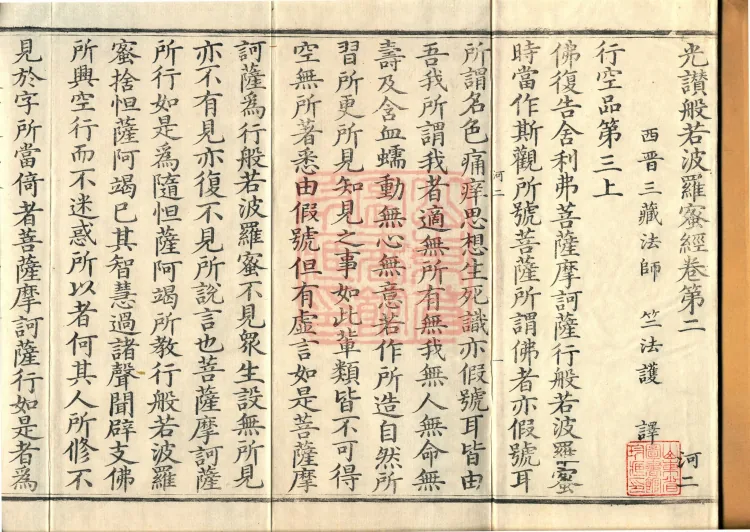 光讃般若波羅蜜經卷第二
河二
西晋三藏法師　竺法護　譯
行空品第三上
佛復告舍利弗菩薩摩訶薩行般若波羅蜜
時當作斯觀所號菩薩所謂佛者亦假號耳
河二
所謂名色痛痒思想生死識亦假號耳皆由
吾我所謂我者適無所有無我無人無命無
壽及含血蠕動無心無意若作所造自然所
習所更所見知見之事如此輩類皆不可得
空無所著悉由假號但有虛言如是菩薩摩
訶薩爲行般若波羅蜜不見衆生設無所見
亦不有見亦復不見所說言也菩薩摩訶薩
所行如是爲隨怛薩阿竭所教行般若波羅
蜜捨怛薩阿竭已其智慧過諸聲聞辟支佛
所興空行而不迷惑所以者何其人所修不
見於字所當倚者菩薩摩訶薩行如是者爲